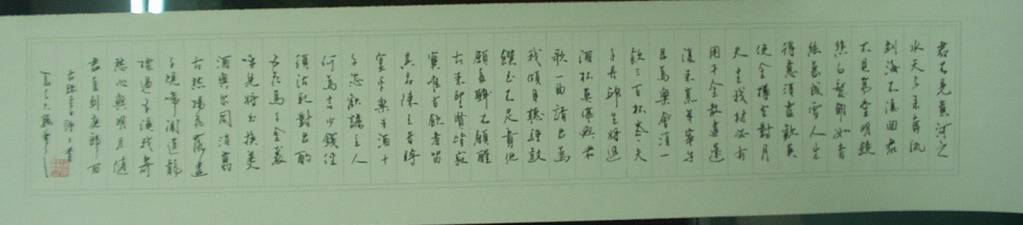 君不見黃河之
水天上來奔流
到海不復回君
不見高堂明鏡
悲白髮朝如青
絲暮成雪人生
得意須盡歡莫
使金樽空對月
天生我材必有
用千金散盡還
復來烹羊宰牛
且為樂會須一
飲三百杯岑夫
子丹邱生將進
酒杯莫停與君
歌一曲請君為
我傾耳聽鐘鼓
饌玉不足貴但
願長醉不願醒
古來聖賢皆寂
寞惟有飲者留
其名陳王昔時
宴平樂斗酒十
千恣歡謔主人
何為言少錢徑
須沽取對君酌
五花馬千金裘
呼兒將出換美
酒與爾同消萬
古愁楊花落盡
子規啼聞道龍
標過五溪我寄
愁心與明月隨
君直到夜郎西